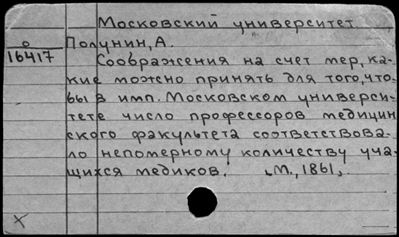 Московский университет.
о
16417
Полунин, А.
Соображения на счет мер, ка-
кие можно принять для того, что-
бы в имп. Московском универси-
тете число профессоров медицин
ского факультета соответствова-
ло непомерному количеству уча-
щихся медиков. М., 1861,.
X